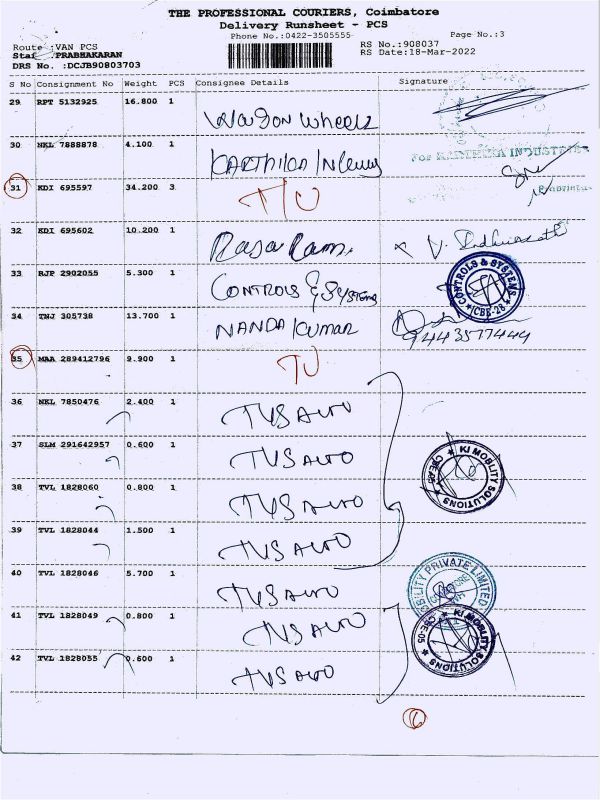 THE PROFESSIONAL COURIERS, Coimbatore
Delivery Runsheet - PCS
Phone No.:0422-3505555
Page No.:3
Route :VAN PCS
RS No.:908037
PRABHAKARAN
RS Date:18-Mar-2022
DRS No. :DCJB90803703
S No Consignment No Weight PCS Consignee Details Signature
29 RPT 5132925 16.800 1 Wagon Wheels
30 NKL 7888878 4.100 1 KARTHIKA
For RADHIKA INDUSTRIES
31 KDI 695597 34.200 3 T/U
32 KDI 695602 10.200 1 Raja Ram.
33 RJP 2902055 5.300 1 CONTROLS & Systems
CONTROLS & SYSTEMS
CBE-28
34 TNJ 305738 13.700 1 NANDA Kumar
9443577444
35 MAA 289412796 9.900 1 TU
36 NKL 7850476 2.400 1 TVS AUTO
37 SLM 291642957 0.600 1 TVS AUTO
KI MOBLITY SOLUTIONS
CBE-05
38 TVL 1828060 0.800 1 TVS AUTO
39 TVL 1828044 1.500 1 TVS AUTO
40 TVL 1828046 5.700 1 TVS AUTO
BILITY PRIVATE LIMITED
41 TVL 1828049 0.800 1 TVS AUTO
KI MOBLITY SOLUTIONS
CBE-05
42 TVL 1828055 0.600 1 TVS AUTO